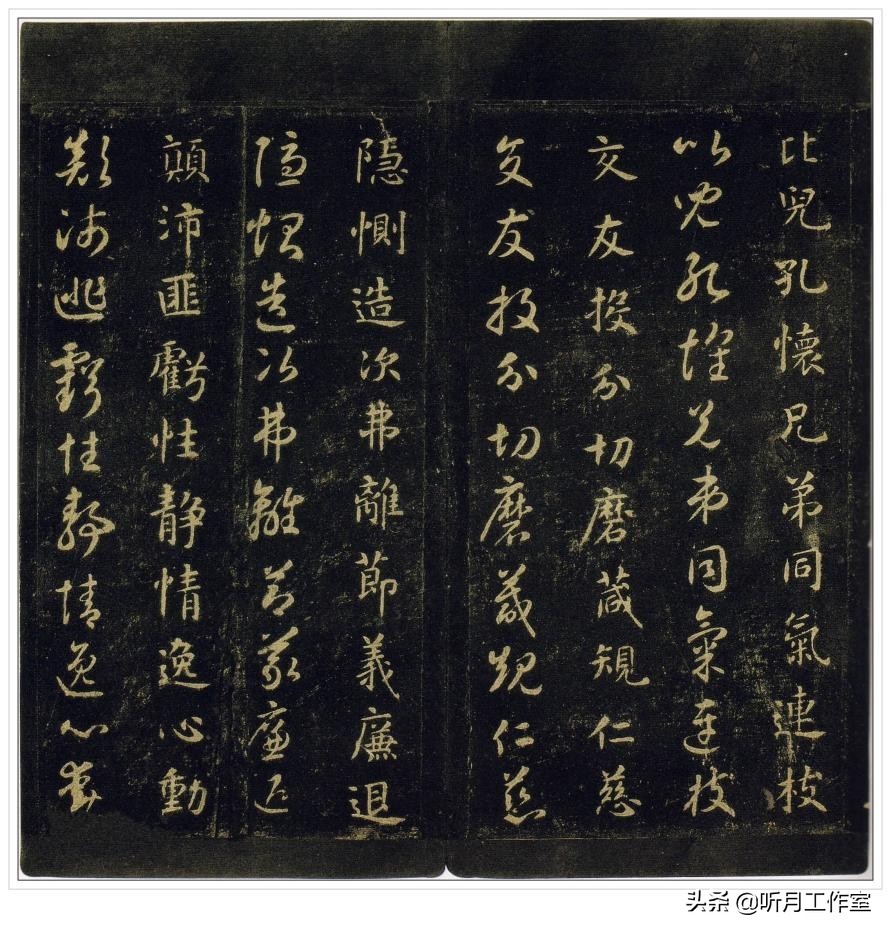 比兒孔懷兄弟同氣連枝
比兒孔懷兄弟同氣連枝
交友投分切磨箴規仁慈
交友投分切磨箴規仁慈
隱惻造次弗離節義廉退
隱惻造次弗離節義廉退
顛沛匪虧性静情逸心動
顛沛匪虧性静情逸心動
头条 @听月工作室